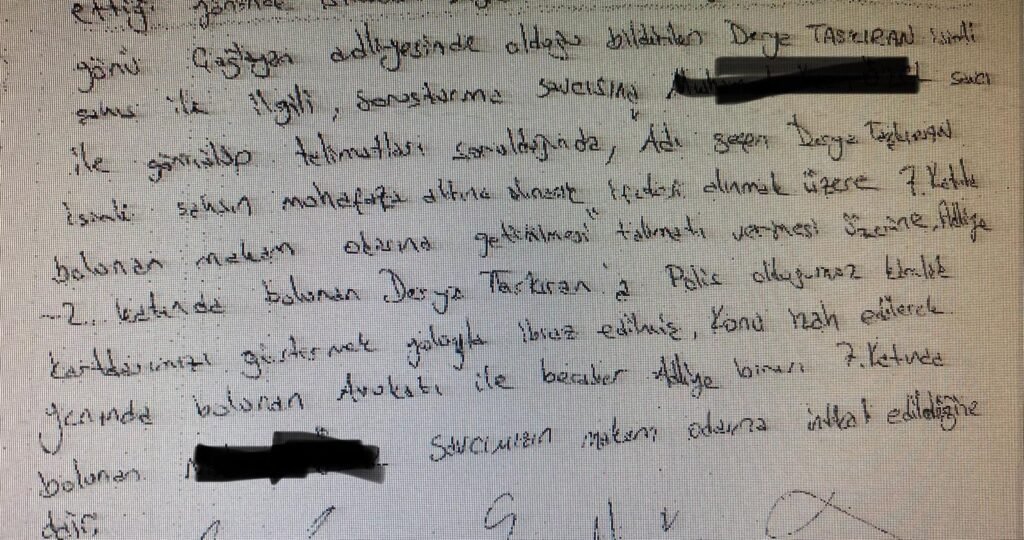 ettiği
günü Çağlayan adliyesinde olduğu bildirilen Derya TAŞKIRAN isimli
şahıs ile ilgili, soruşturma savcısına savcı
ile görüşülüp talimatları sorulduğunda, "Adı geçen Derya TAŞKIRAN
isimli şahsın muhafaza altına alınarak ifadesi alınmak üzere 7. Katta
bulunan makam odasına getirilmesi" talimatı vermesi üzerine, Adliye
-2. katında bulunan Derya Taşkıran'a Polis olduğumuz kimlik
kartlarımızı göstermek yoluyla ibraz edilmiş, Konu izah edilerek
yanında bulunan Avukatı ile beraber Adliye binası 7. Katında
bulunan Savcımızın makam odasına intikal edildiğine
dair;